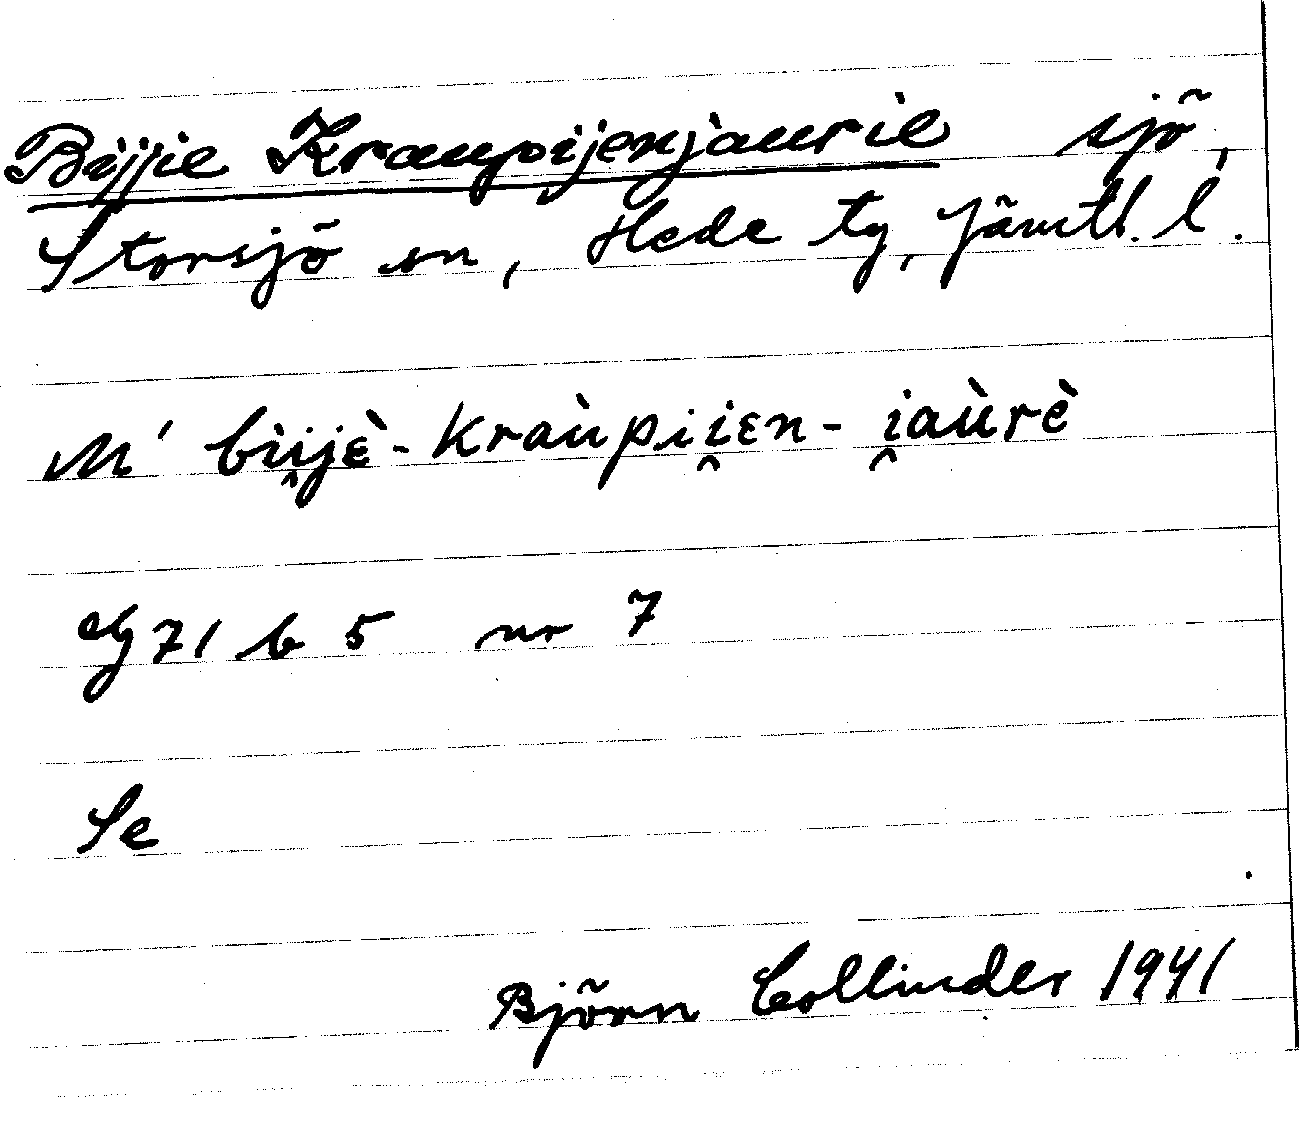 Bijjie Kraupijenjaurie sjö,
Storsjö sn, Hede tg, Jämtl. l.
M' bìi̯jὲ-kraùpii̯ɛn-i̯aùrè
Eg 71 b 5 nr 7
Se
Björn Collinder 1941